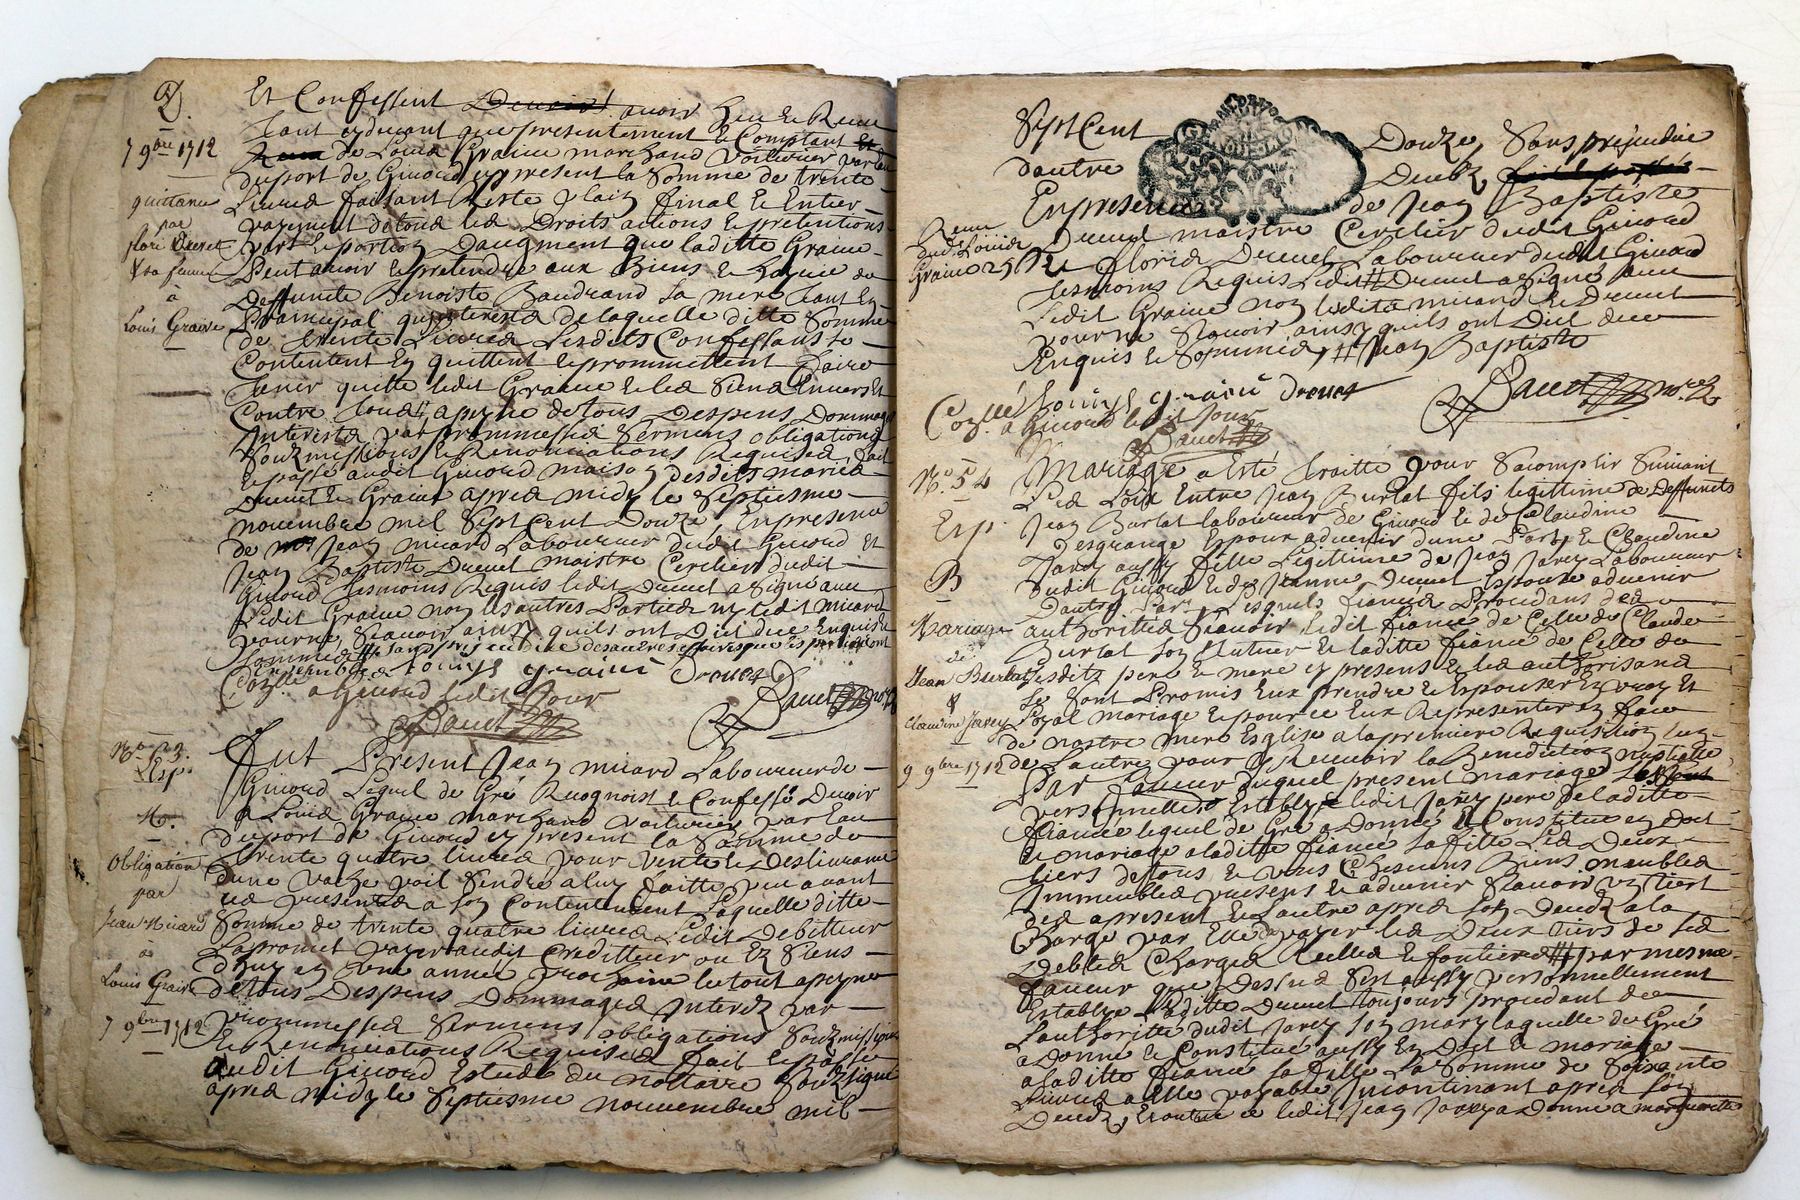 Et Confessent avoir heu et Receu
tant cydevant que presentement et Comptant
de Louis Graine marchand voiturier par eau
du port de Givord cy present la Somme de trente
Livres faisant Reste plain final et Entier
payement de tous les Droits actions et pretentions
part et portion Daugment que laditte Graine
Peut avoir et pretendre aux Biens et
Deffuncte Benoiste Baudrand sa mere tant En
Principal qu'interests de laquelle ditte Somme
de trente Livres Lesdits Confessants se
Contentent En quittent et promettent faire
tenir quitte ledit Graine et les Siens Envers Et
Contre tous a peyne de tous Despens Dommages
Interests par promesses Sermens obligations
Soubzmissions et Renonciations Requises fait
et passé audit Givord maison desdits mariés
Drevet et Graine apres midy le Septiesme
novembre mil Sept Cent Douze En presence
de Jean micard Laboureur dudit Givord Et
Jean Baptiste Drevet maistre Cerclier dudit
Givord tesmoins Requis ledit Drevet a Signé avec
Ledit Graine non les autres Parties ny ledit micard
pour ne Scavoir ainsy quils ont Dict de ce Enquis et
Sommés
a Givord ledit Jour
7 9bre 1712
quittance
par
flori Drevet
& sa femme
à
Louis Graine
No. 53.
Exp.
Fut Present Jean micard Laboureur de
Givord Lequel de Gré Recognoist et Confesse Devoir
A Louis Graine marchand voiturier par Eau
du port de Givord cy present la Somme de
trente quatre livres pour vente et Deslivrance
Dune vache poil Sendré a luy faitte peu avant
ces presentes a son Contentement Laquelle ditte
Somme de trente quatre livres Ledit Debitteur
La promet payer audit Creditteur ou Es Siens
D'huy en une année prochaine le tout a peyne
de tous Despens Dommages Interest par
promesses Sermens obligations Soubzmissions
et Renonciations Requises fait et passé
audit Givord Estude du nottaire Soubzsigné
apres midy le Septiesme nouvembre mil
Obligation
par
Jean Micard
à
Louis Graine
7 9bre 1712
Sept Cent Douze Sans prejudice
dautre Deubz
En presence de Jean Baptiste
Drevet maistre Cerclier dudit Givord
Et Floris Drevet Laboureur dudit Givord
tesmoins Requis Ledit Drevet a Signé avec
Ledit Graine non lesdits micard et Drevet
pour ne Scavoir ainsy quils ont Dict de ce
Enquis et Sommés Jean Baptiste
a Givord ledit Jour
No. 54
Exp.
Mariage a Esté traitté pour Sacomplir Suivant
Les Loix Entre Jean Burlat fils legittime de Deffuncts
Jean Burlat laboureur de Givord et de Claudine
Desgrange Espoux advenir dune Part et Claudine
Jarey aussy fille Legitime de Jean Jarey Laboureur
dudit Givord et de Jeanne Drevet Espouse advenir
Dautre Part Lesquels fiancés Procedans des
authorités Scavoir ledit fiancé de Celle de Claude
Burlat son Tuteur et laditte fiancé de Celle de
Sesdits pere et mere cy presens et les authorisans
Se Sont Promis Eux prendre et Espouser En vray Et
Loyal mariage et pour ce Eux Representer en face
de nostre mere Esglise a la premiere Requisition lun
de Lautre pour y Recevoir la Benediction nuptialle
Par faveur duquel present mariage
personnellement Estably ledit Jarey pere de laditte
fiancée lequel de Gré a Donné et Constitué en Dot
et mariage a laditte fiancée sa fille Les Deux
tiers de tous et uns Chescuns Biens meubles
Immeubles presens et advenir Scavoir un tiert
des apresent et Lautre apres son Decedz a la
Charge par Elle de payer les Deux tiers de ses
Debtes Charges Reelles et fontieres par mesme
faveur que Dessus S'est aussy personnellement
Establye Laditte Drevet toujours procedant de
Lauthoritté dudit Jarey son mary laquelle de Gré
a Donné et Constitué aussy En Dot et mariage
a laditte fiancé sa fille La Somme de Soixante
Livres a Elle payable Incontinant apres son
Decedz, Et outre ce ledit Jean Jarey a Donné a marguerite
Mariage
de
Jean Burlat
&
Claudine Jarey
9 9bre 1712